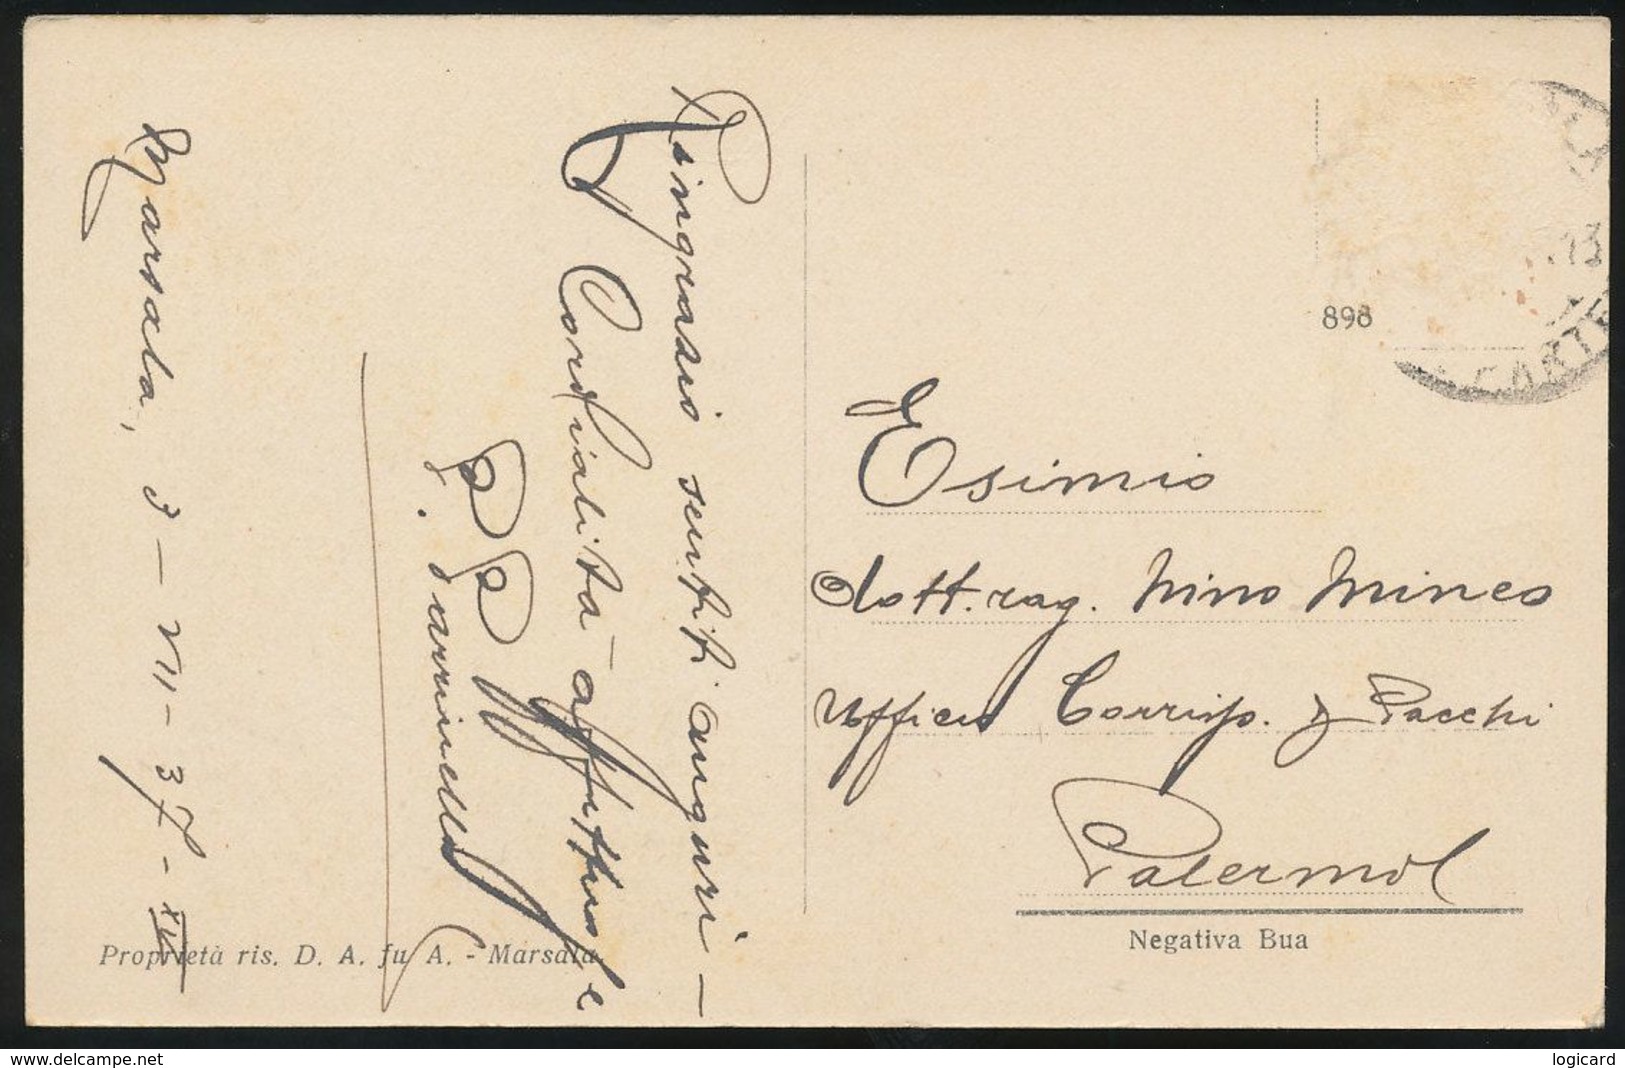 Marsala, 3 - VII - 37 - XV
Ringrazio sentiti auguri -
Cordialità affettuose
898
Esimio
dott. rag. Nino Mineo
Ufficio Corrisp. Pacchi
Palermo
Negativa Bua
Proprietà ris. D. A. fu A. - Marsala.
www.delcampe.net
logicard